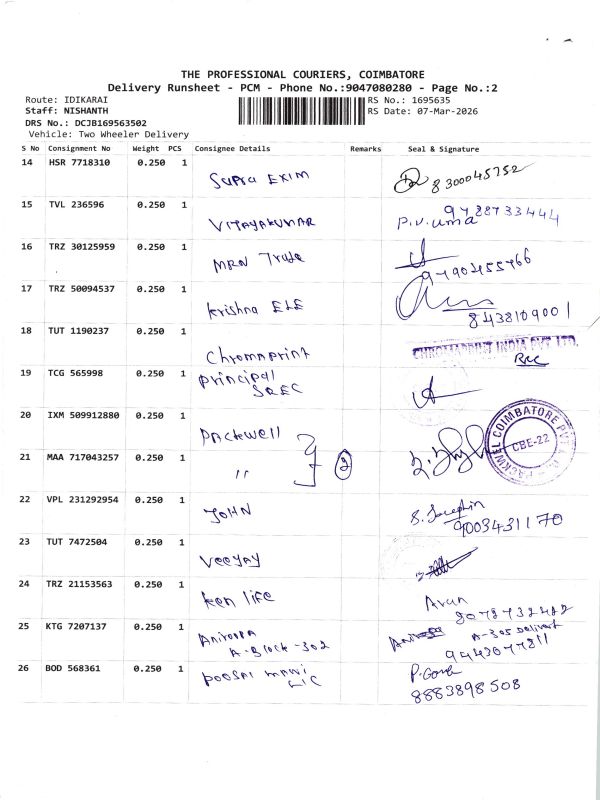 THE PROFESSIONAL COURIERS, COIMBATORE
Delivery Runsheet - PCM - Phone No.:9047080280 - Page No.:2
Route: IDIKARAI
RS No.: 1695635
Staff: NISHANTH
RS Date: 07-Mar-2026
DRS No.: DCJB169563502
Vehicle: Two Wheeler Delivery
S No Consignment No Weight PCS Consignee Details Remarks Seal & Signature
14 HSR 7718310 0.250 1
Supra EXIM 8300045752
15 TVL 236596 0.250 1
VIJAYAKUMAR P.V.uma 9788733444
16 TRZ 30125959 0.250 1
MRN Trade
17 TRZ 50094537 0.250 1
krishna ELE 8438109001
18 TUT 1190237 0.250 1
Chromaprint CHROMAPRINT INDIA PVT. LTD.
19 TCG 565998 0.250 1
principal
SREC
20 IXM 509912880 0.250 1
Packwell
21 MAA 717043257 0.250 1
" 2
PACKWEL COIMBATORE PVT
CBE-22
22 VPL 231292954 0.250 1
JOHN S. Josephin
9003431170
23 TUT 7472504 0.250 1
Veejay
24 TRZ 21153563 0.250 1
keen life Arun
25 KTG 7207137 0.250 1
A-Block-302 A-305 Delivert
9442077811
26 BOD 568361 0.250 1
LIC
8883898508